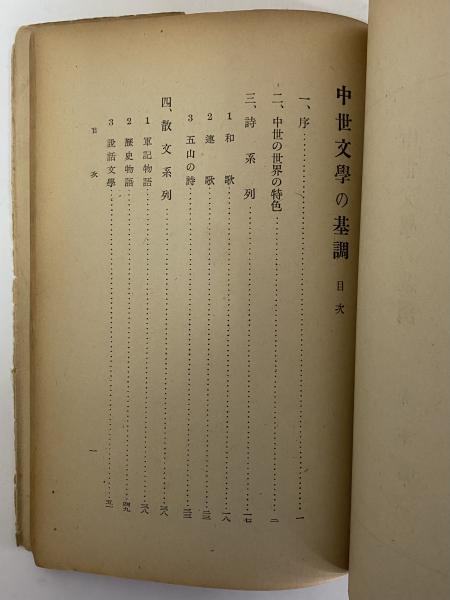 中世文學の基調 目次
一、序……一
二、中世の世界の特色……二
三、詩系列……一七
1 和歌……一八
2 連歌……二三
3 五山の詩……三三
四、散文系列……三八
1 軍記物語……三八
2 歴史物語……四九
3 説話文學……五一
目次 一